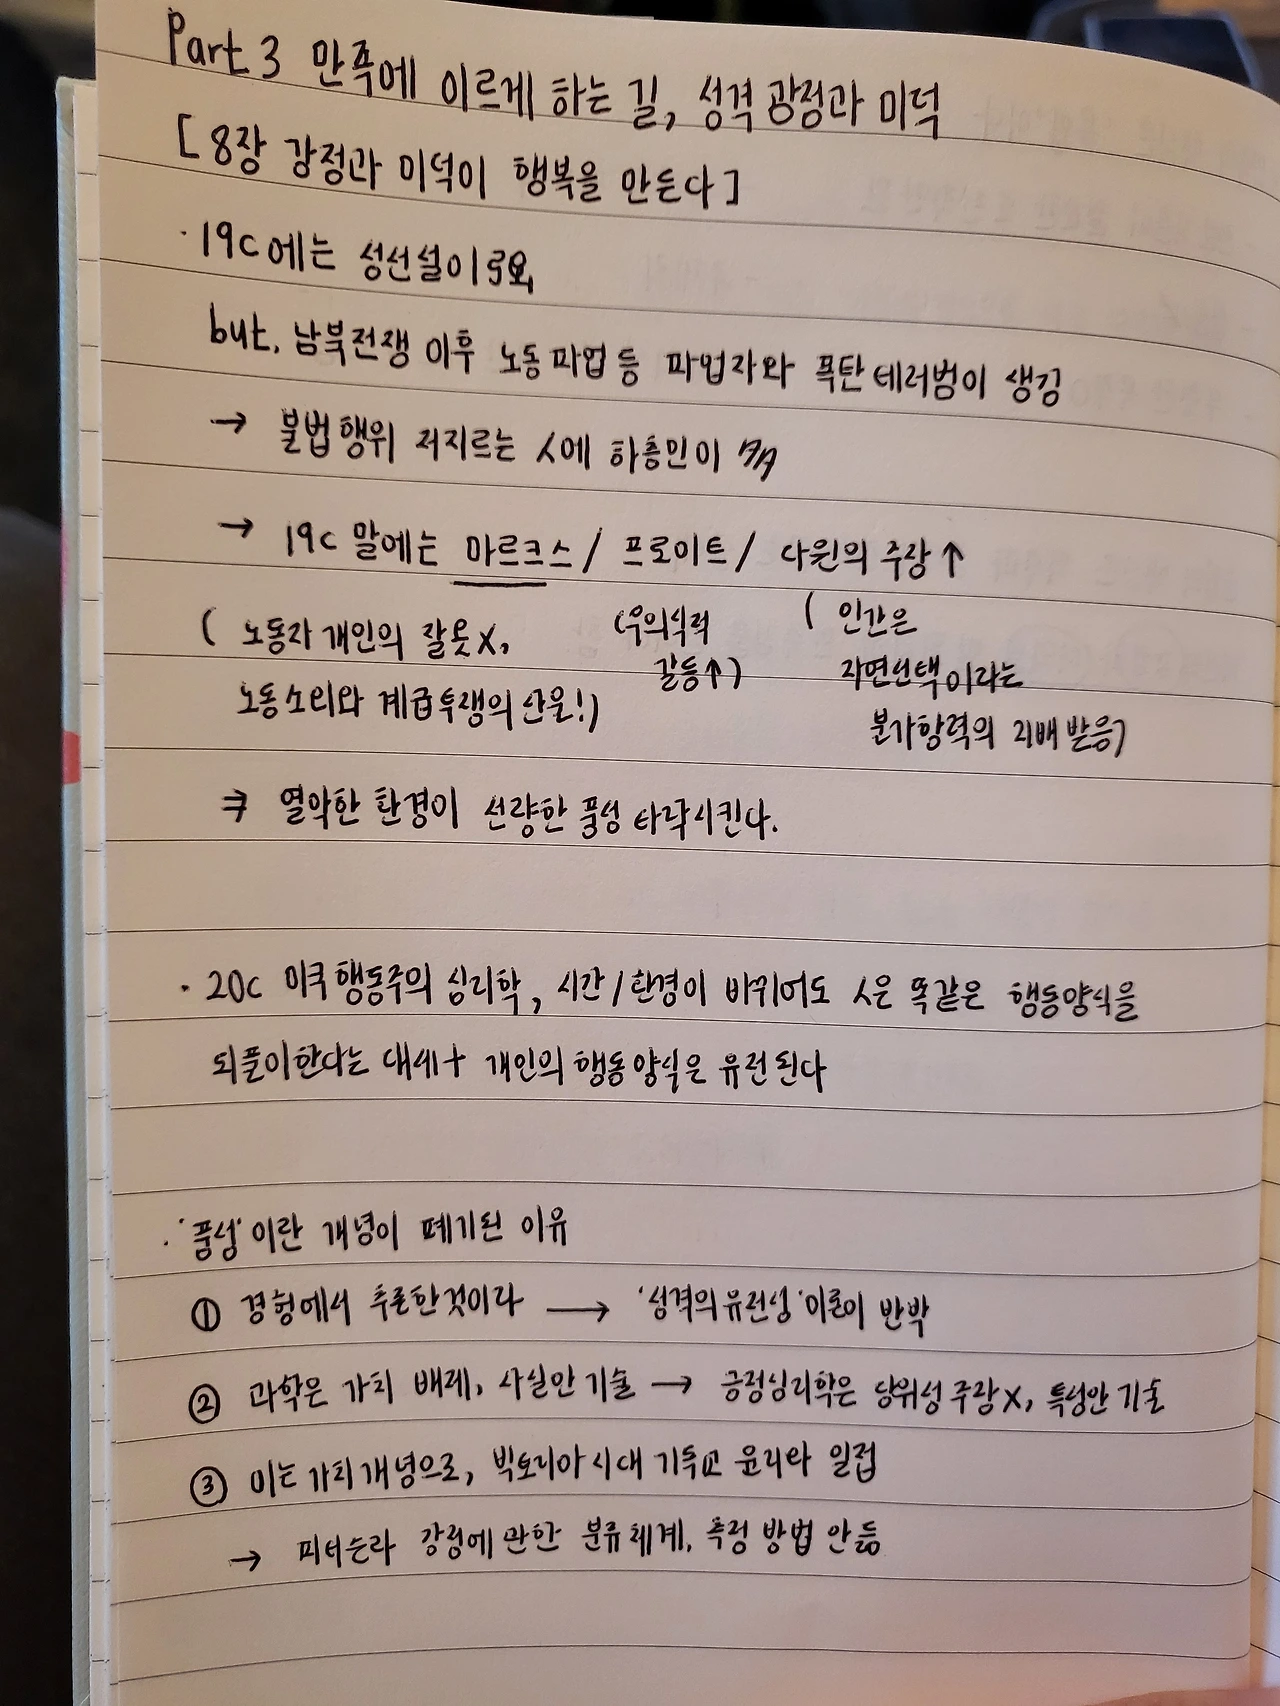 Part 3 만족에 이르게 하는 길, 성격 강점과 미덕
[8장 강점과 미덕이 행복을 만든다]
· 19c에는 성선설이
but, 남북전쟁 이후 노동파업 등 파업자와 폭탄테러범이 생김
→ 불법행위 저지르는 人에 하층민이 多
→ 19c 말에는 마르크스 / 프로이트 / 다윈의 주장↑
( 노동자 개인의 잘못X, (무의식적 ( 인간은
갈등↑) 자연선택이라는
노동소외와 계급투쟁의 산물!)
불가항력의 지배 받음)
⇒ 열악한 환경이 선량한 품성 타락시킨다.
· 20c 미국 행동주의 심리학, 시간/환경이 바뀌어도 人은 똑같은 행동양식을
되풀이한다는 대세 + 개인의 행동양식은 유전된다
· '품성'이란 개념이 폐기된 이유
① 경험에서 추론한것이다 → '성격의 유전성' 이론이 반박
② 과학은 가치 배제, 사실만 기술 → 긍정심리학은 당위성 주장X, 특성만 기술
③ 이는 가치개념으로, 빅토리아시대 기독교 윤리와 밀접
→ 피터슨과 강점에 관한 분류체계, 측정 방법 만듦